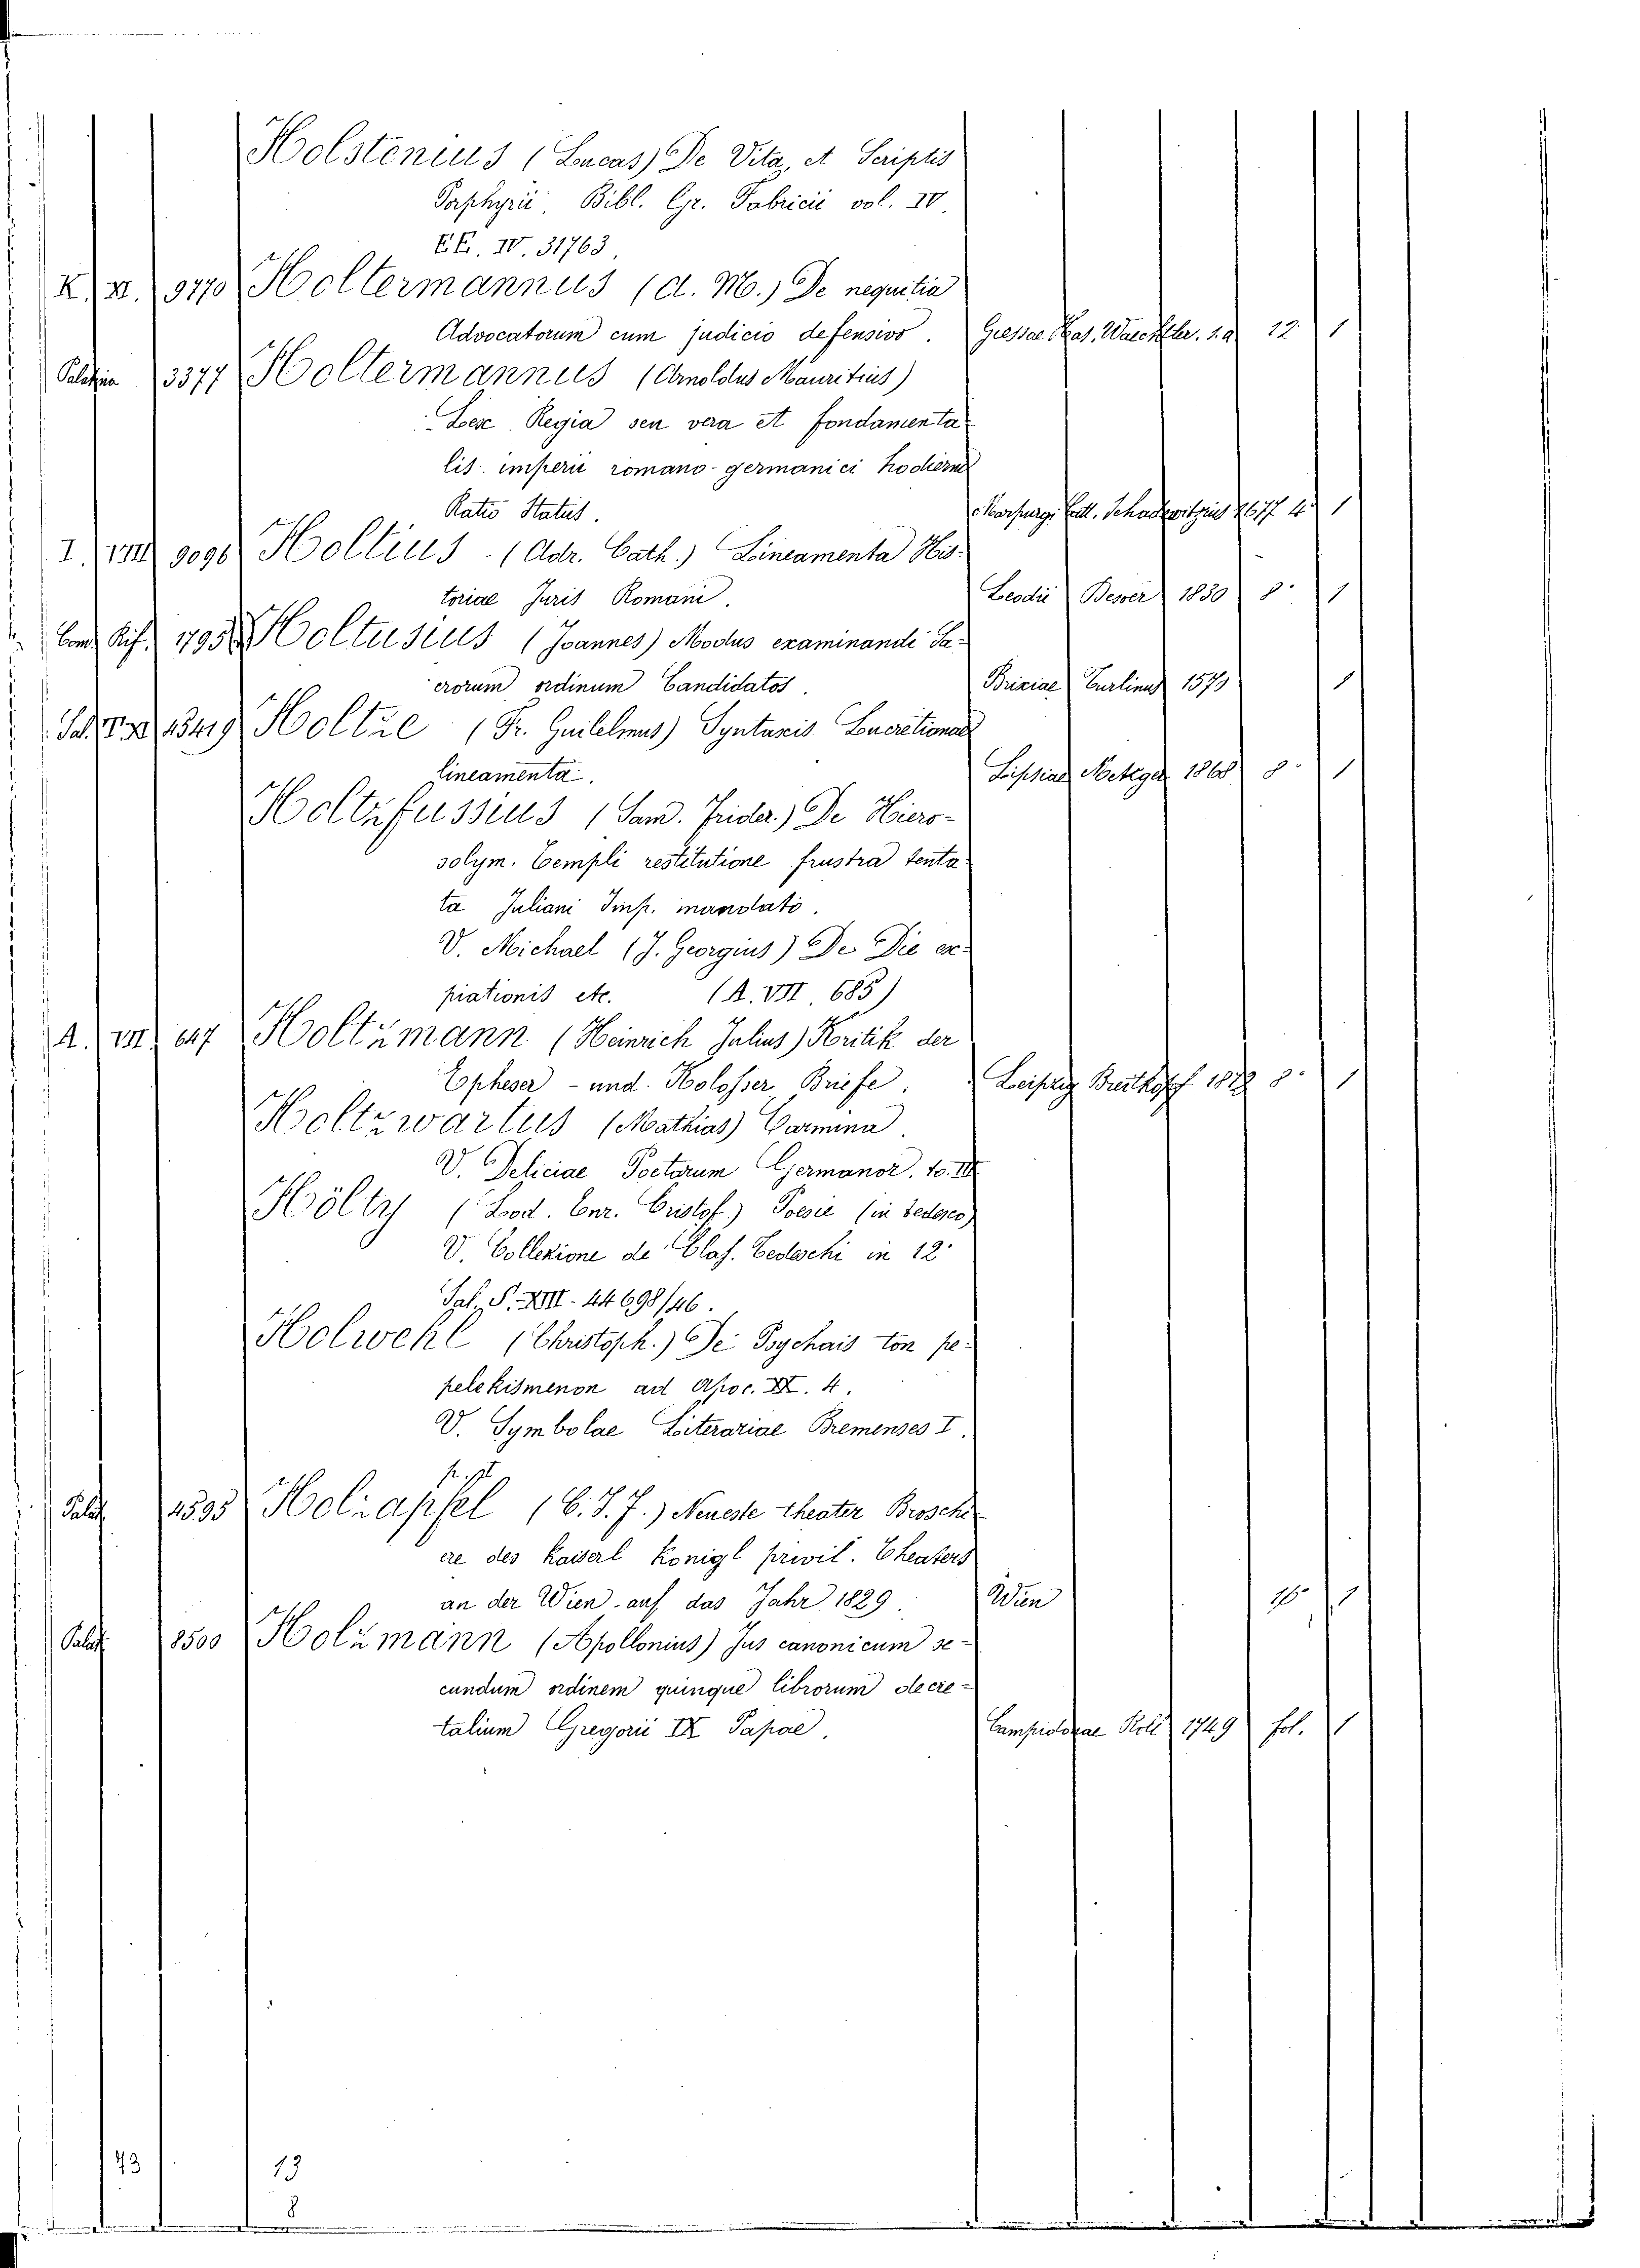 Holstenius (Lucas) De Vita, et Scriptis
Porphyrii. Bibl. Gr. Fabricii vol. IV.
EE. IV. 31763.
K. XI. 9770 Holtermannus (A. M.) De nequitia
Advocatorum cum judicio defensivo. Giessae Kas. Waechtler. s.a 12. 1
Palatina 3377 Holtermannus (Arnoldus Mauritius)
Lex Regia seu vera et fondamenta-
lis imperii romano-germanici hodierni
Ratio Status. Marpurgi Catt. Schadewitzius 1677 4. 1
I. VIII 9096 Holtius (Adr. Cath.) Lineamenta His-
toriae Juris Romani. Leodii 1830 8. 1
1795 Holtusius (Joannes) Modus examinandi Sa-
crorum ordinum Candidatos. Brixiae Turlinus 1579 1
13419 Holtze (Fr. Guilelmus) Syntaxis Lucretianae
lineamenta. Lipsiae Metzger 1868 8. 1
Holtzfussius (Sam. Frider.) De Hiero-
solym. Templi restitutione frustra tenta-
ta Juliani Imp. mandato.
V. Michael (J. Georgius) De Die ex-
piationis etc. (A. VII. 685)
A. VII. 647 Holtzmann (Heinrich Julius) Kritik der
Epheser- und Kolosser Briefe. Leipzig Breitkopf 1872 8. 1
Holtzwartus (Mathias) Carmina.
V. Deliciae Poetarum Germanor. to. III
Hölty (Lod. Enr. Cristof.) Poesie (in tedesco)
V. Collezione de' Clas. Tedeschi in 12.
Sal. S. XIII. 44698/46.
Holwehl (Christoph.) De Psychais ton pe-
pelekismenon ad Apoc. XX. 4.
V. Symbolae Literariae Bremenses I.
Palat. 4595 Holzapfel (C. J. J.) Neueste theater Brosch-
ere des Kaiserl Königl privil. Theaters
an der Wien auf das Jahr 1829. Wien 16. 1
Palat. 8500 Holzmann (Apollonius) Jus canonicum se-
cundum ordinem quinque librorum decre-
talium Gregorii IX Papae. Campidonae Roll 1749 fol. 1
43 13
8